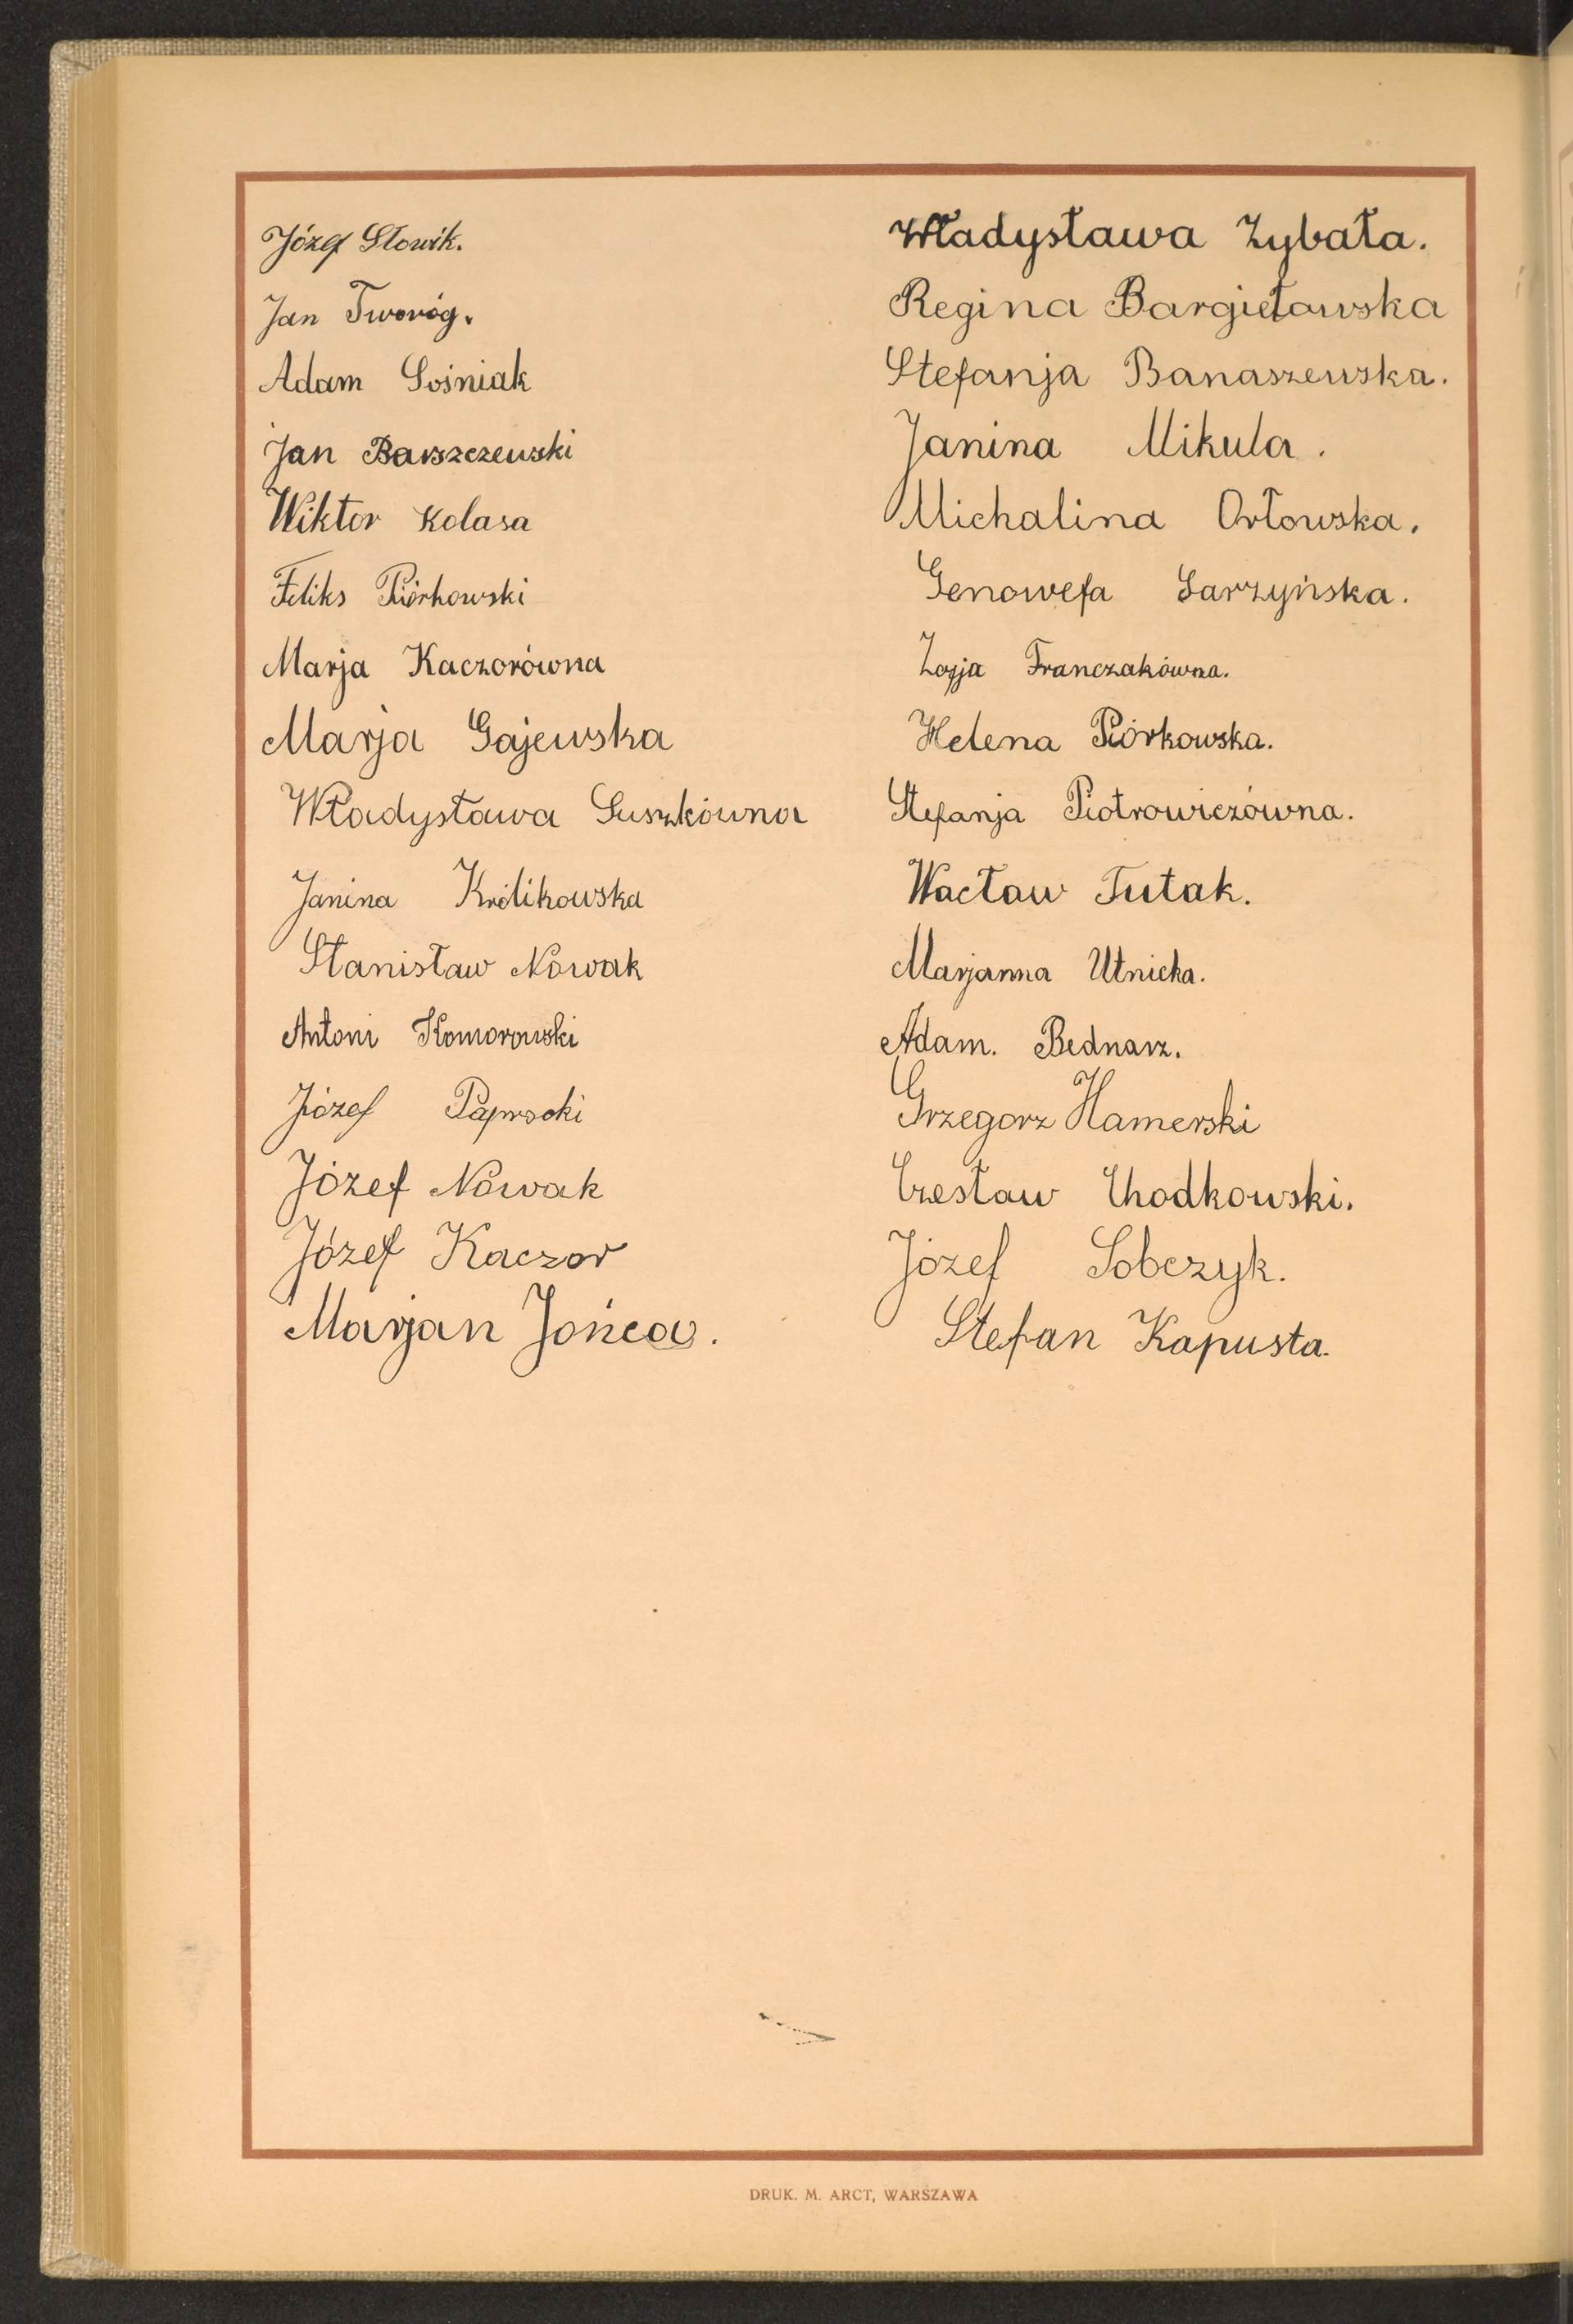 Józef Słowik.
Jan Tworóg.
Adam Sośniak
Jan Barszczewski
Wiktor Kolasa
Feliks Piórkowski
Marja Kaczorówna
Marja Gajewska
Władysława Suszkówna
Janina Królikowska
Stanisław Nowak
Antoni Komorowski
Józef
Józef Nowak
Józef Kaczor
Marjan Jońca.
Władysława Zybała.
Regina Bargiełowska
Stefanja Banaszewska.
Janina Mikula.
Michalina Orłowska.
Genowefa Sarzyńska.
Zofja Franczakówna.
Helena Piórkowska.
Stefanja Piotrowiczówna.
Wacław Tutak.
Marjanna Utnicka.
Adam. Bednarz.
Grzegorz Hamerski
Czesław Chodkowski.
Józef Sobczyk.
Stefan Kapusta.
DRUK. M. ARCT, WARSZAWA